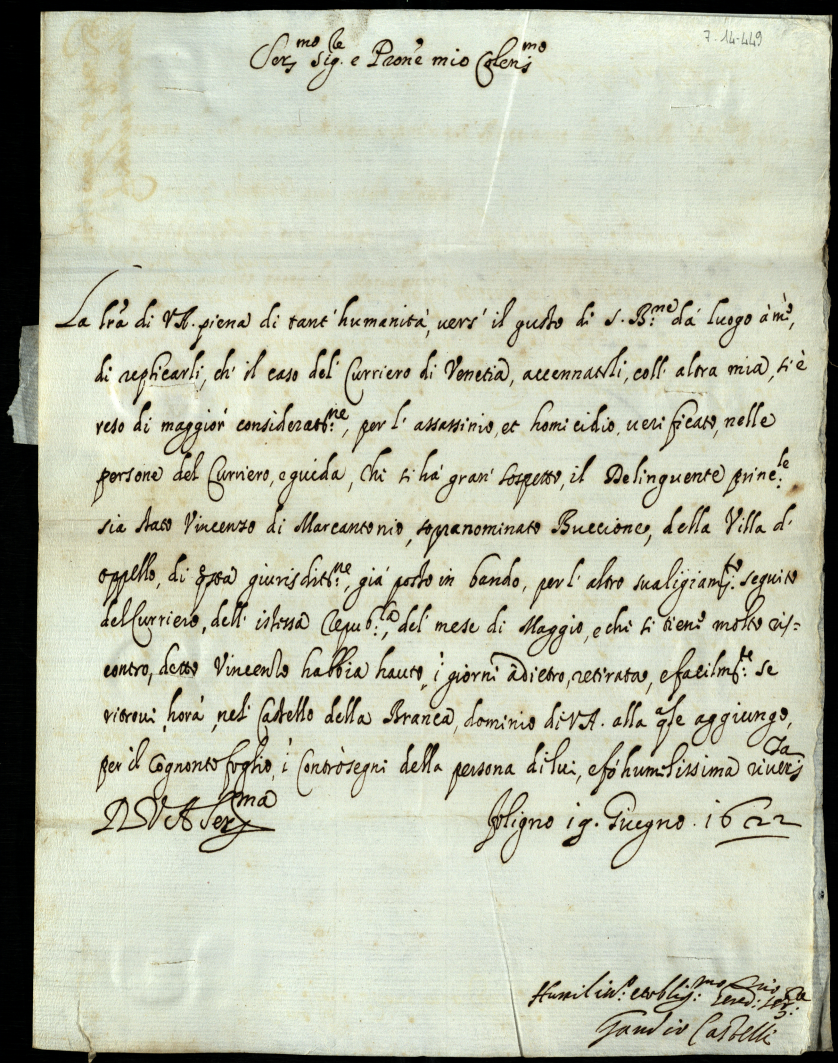 7-14-449
Ser.mo Sig.re e Pron'e mio Colen.mo
La lr'a di V.A. piena di tant' humanità, vers' il gusto di S. B.ne dà luogo à me,
di replicarli, ch' il caso del Curriero di Venetia, accennatoli, coll' altra mia, si è
reso di maggior' considerat.ne, per l' assassinio, et homicidio, verificato, nelle
persone del Curriero, e guida, chi si hà gran' sospetto, il Delinguente prin.le
sia stato Vincenzo di Marcantonio, sopranominato Buccione, della Villa d'
oppello, di q'sta giurisditt.ne, già posto in bando, per l' altro svaligiam.to seguito
del Curriero, dell' istessa Repub.ca, del' mese di Maggio, e chi si tiene molto ris=
contro, detto Vincenzo habbia hauto, i giorni àdietro, retirata, e facilm.te se
ritrovi, hora, nel' Castello della Branca, dominio di V.A. alla q'le aggiungo,
per il cognonto foglio, i contrasegni della persona di lui, e fò humilissima river.za
D V A Ser.ma Foligno 19. Giugno. 1622
Humiliss.o et oblig.mo Ser.re
Castelli